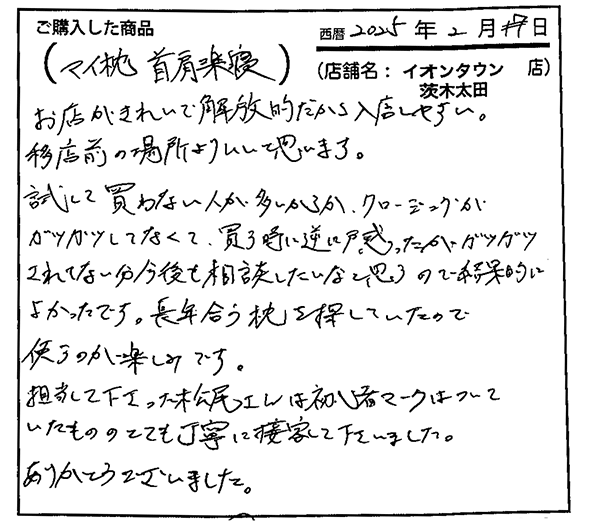 ご購入した商品
西暦 2025年2月 日
(マイ枕 首肩楽寝)
(店舗名:イオンタウン 店)
茨木太田
お店がきれいで解放的だから入店しやすい。
移店前の場所よりいいと思います。
試して買わない人が多いからか、クロージングが
ガツガツしてなくて、買う時に逆に戸惑ったがガツガツ
されてない分今後も相談したいなと思うので結果的に
よかったです。長年合う枕を探していたので
使うのが楽しみです。
担当して下さった松尾さんは初心者マークはついて
いたもののとても丁寧に接客して下さいました。
ありがとうございました。